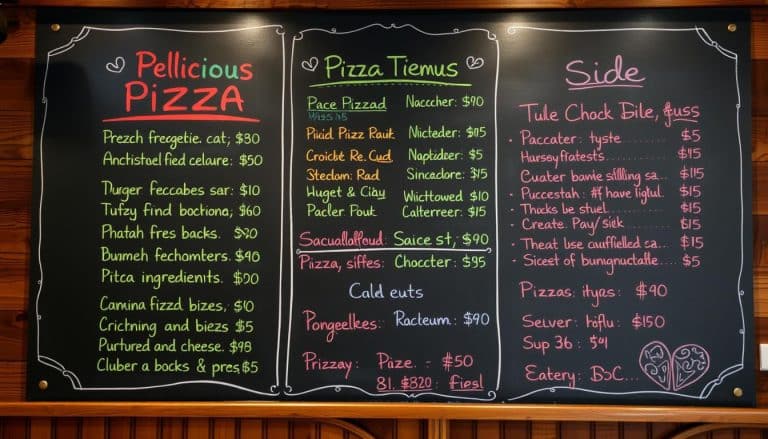 Pellicious
PIZZA
Prezch fregetie. cat; $30
Anchistael fied celaure: $50
Turger feccabes sar: $10
Tufzy find boctiona; $60
Phatah fres backs.
Bumemh fechomters. $40
Pitca ingredients.
Camina fizzd bizes, $10
Crichning and biezs $5
Purtured and cheese. $98
Cluber a bocks & pres, $5
Pizza Tiemus
Pace Pizzad Nacccher: $90
Picid Pizz Rauk Nicteder: $15
Croickt Re. Cud Naptoder: $5
Stedam: Rad Sincadore: $15
Huget & Ciay Wicttowed $10
Pacler Fout Calterreer: $15
Sacuallafloud: Saice st, $90
Pizzia, siffes: Choccter: $95
Cald euts
Pongeelkes: Racteum: $90
Prizzay: Paze. - $50
81. $820: Fiesl
Side
Tule Chock Bile, fuss
Paccater: tyste $5
Hurseyflatests $15
Cuater bawie sfilling sa... $115
Puccestah: have ligtul $15
Thocks be stuel $15
Create. Pay/siek $15
Theat lse cauffielled sa... $15
Siceet of bungnuctalle $5
Pizzas: ityas: $40
Selver: hoflu: $150
Sup 36:
Eatery: BSC...